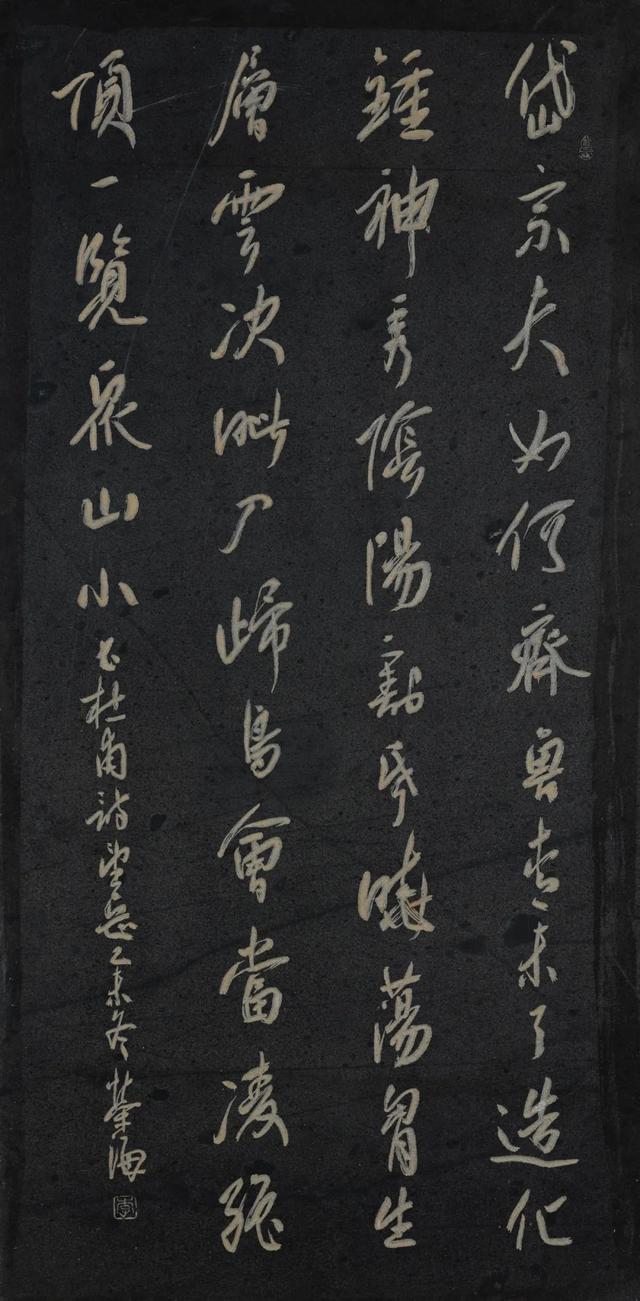 岱宗夫如何齊魯青未了造化
鍾神秀陰陽割昏曉蕩胷生
層雲决眦入歸鳥會當凌絕
頂一覽眾山小 杜甫詩望岳 未冬 海